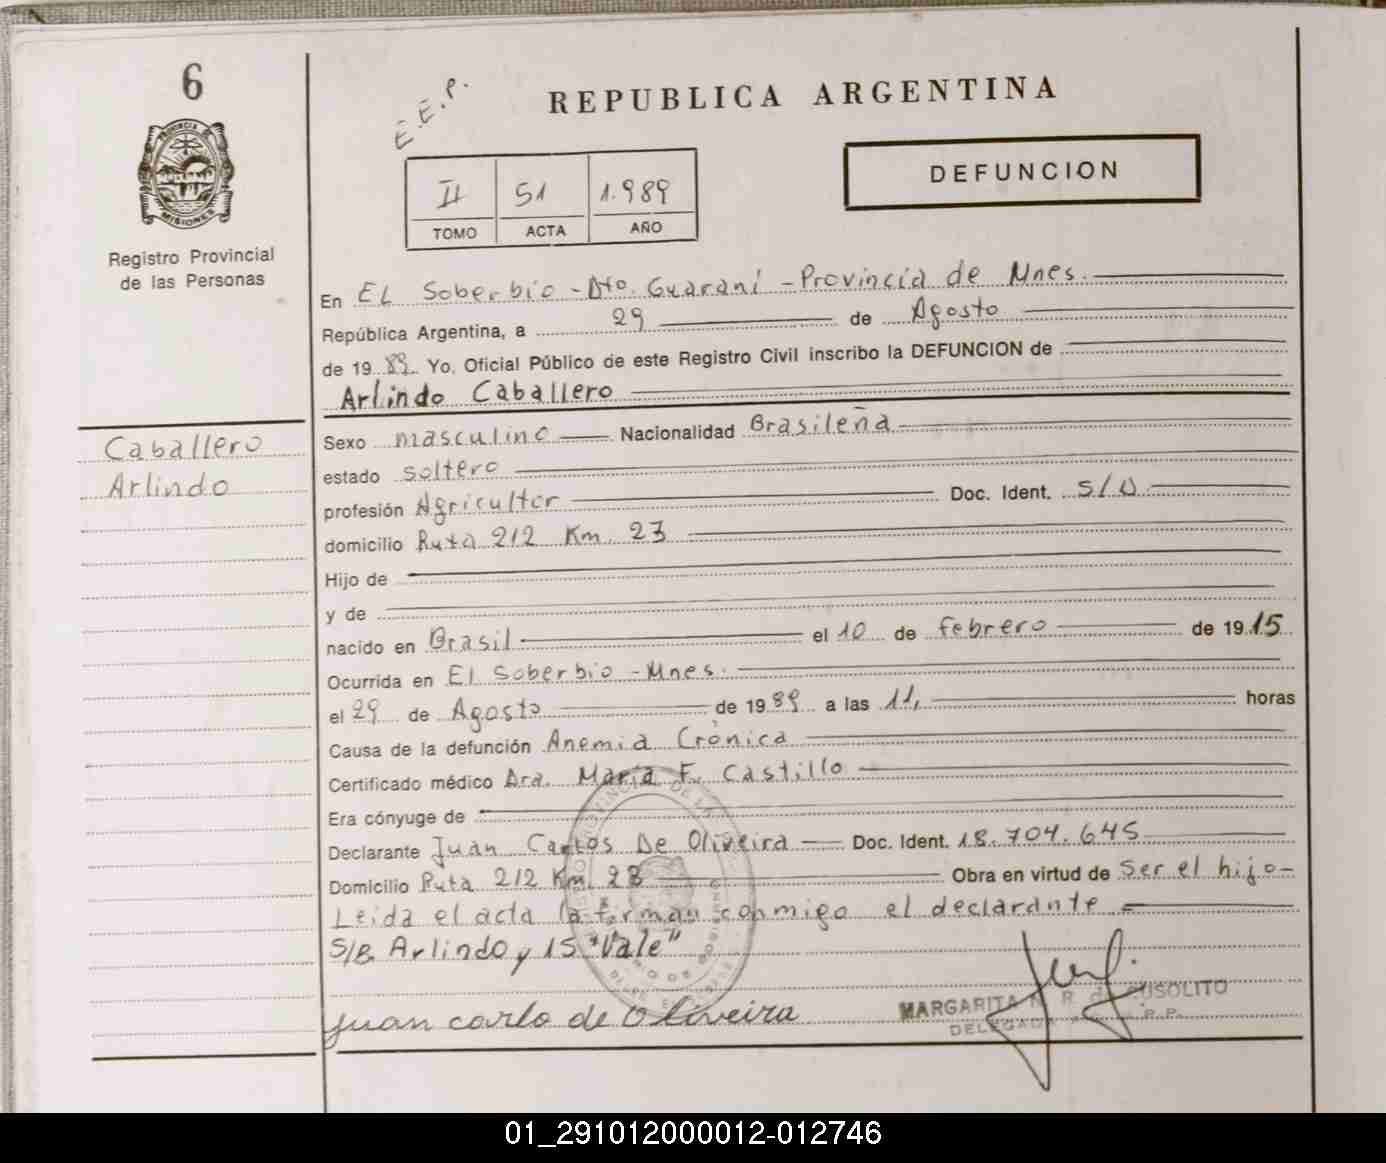 6
PROVINCIA DE
MISIONES
Registro Provincial
de las Personas
E.E.P.
REPUBLICA ARGENTINA
II 51 1.989
TOMO ACTA AÑO
DEFUNCION
En El Soberbio - Dto. Guaraní - Provincia de Mnes.
República Argentina, a 29 de Agosto
de 19 89 Yo, Oficial Público de este Registro Civil inscribo la DEFUNCION de
Arlindo Caballero
Caballero
Arlindo
Sexo masculino Nacionalidad Brasileña
estado soltero
profesión Agricultor Doc. Ident. S/D
domicilio Ruta 212 Km 23
Hijo de
y de
nacido en Brasil el 10 de febrero de 1915
Ocurrida en El Soberbio - Mnes.
el 29 de Agosto de 19 89 a las 11, horas
Causa de la defunción Anemia Crónica
Certificado médico Dra. María F. Castillo
Era cónyuge de
Declarante Juan Carlos De Oliveira Doc. Ident. 18.704.645
Domicilio Ruta 212 Km 23 Obra en virtud de Ser el hijo-
Leída el acta la firman conmigo el declarante
S/B. Arlindo y 15 "Vale"
Juan carlo de Oliveira
MARGARITA N. R. de CUSOLITO
DELEGADA R.P.
01_291012000012-012746